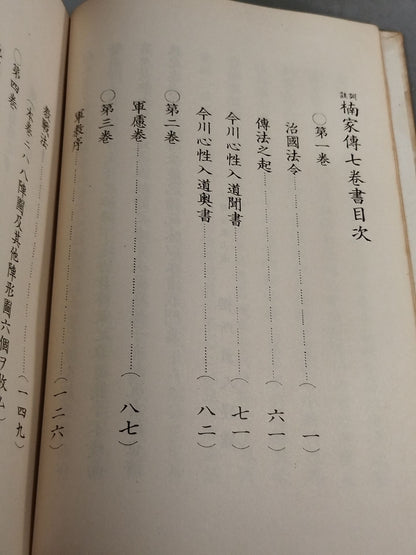 訓註 楠家傳七卷書目次
○第一卷
治國法令……(一)
傳法之起……(六一)
今川心性入道聞書……(七一)
今川心性入道奥書……(八二)
○第二卷
軍慮卷……(八七)
○第三卷
軍教序……(一二六)
教戰法……(一四九)
(本卷ニハ八陣圖及其他陣形圖六個ヲ收ム)
○第四卷